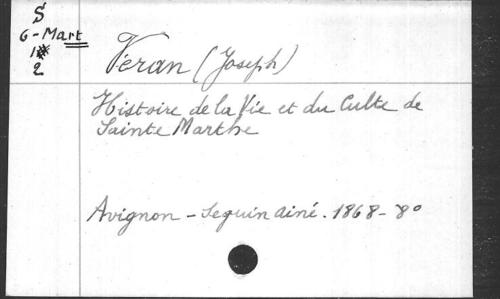 S
6-Mart
2
Véran (Joseph)
Histoire de la Vie et du Culte de
Sainte Marthe
Avignon - Seguin ainé. 1868 - 8º